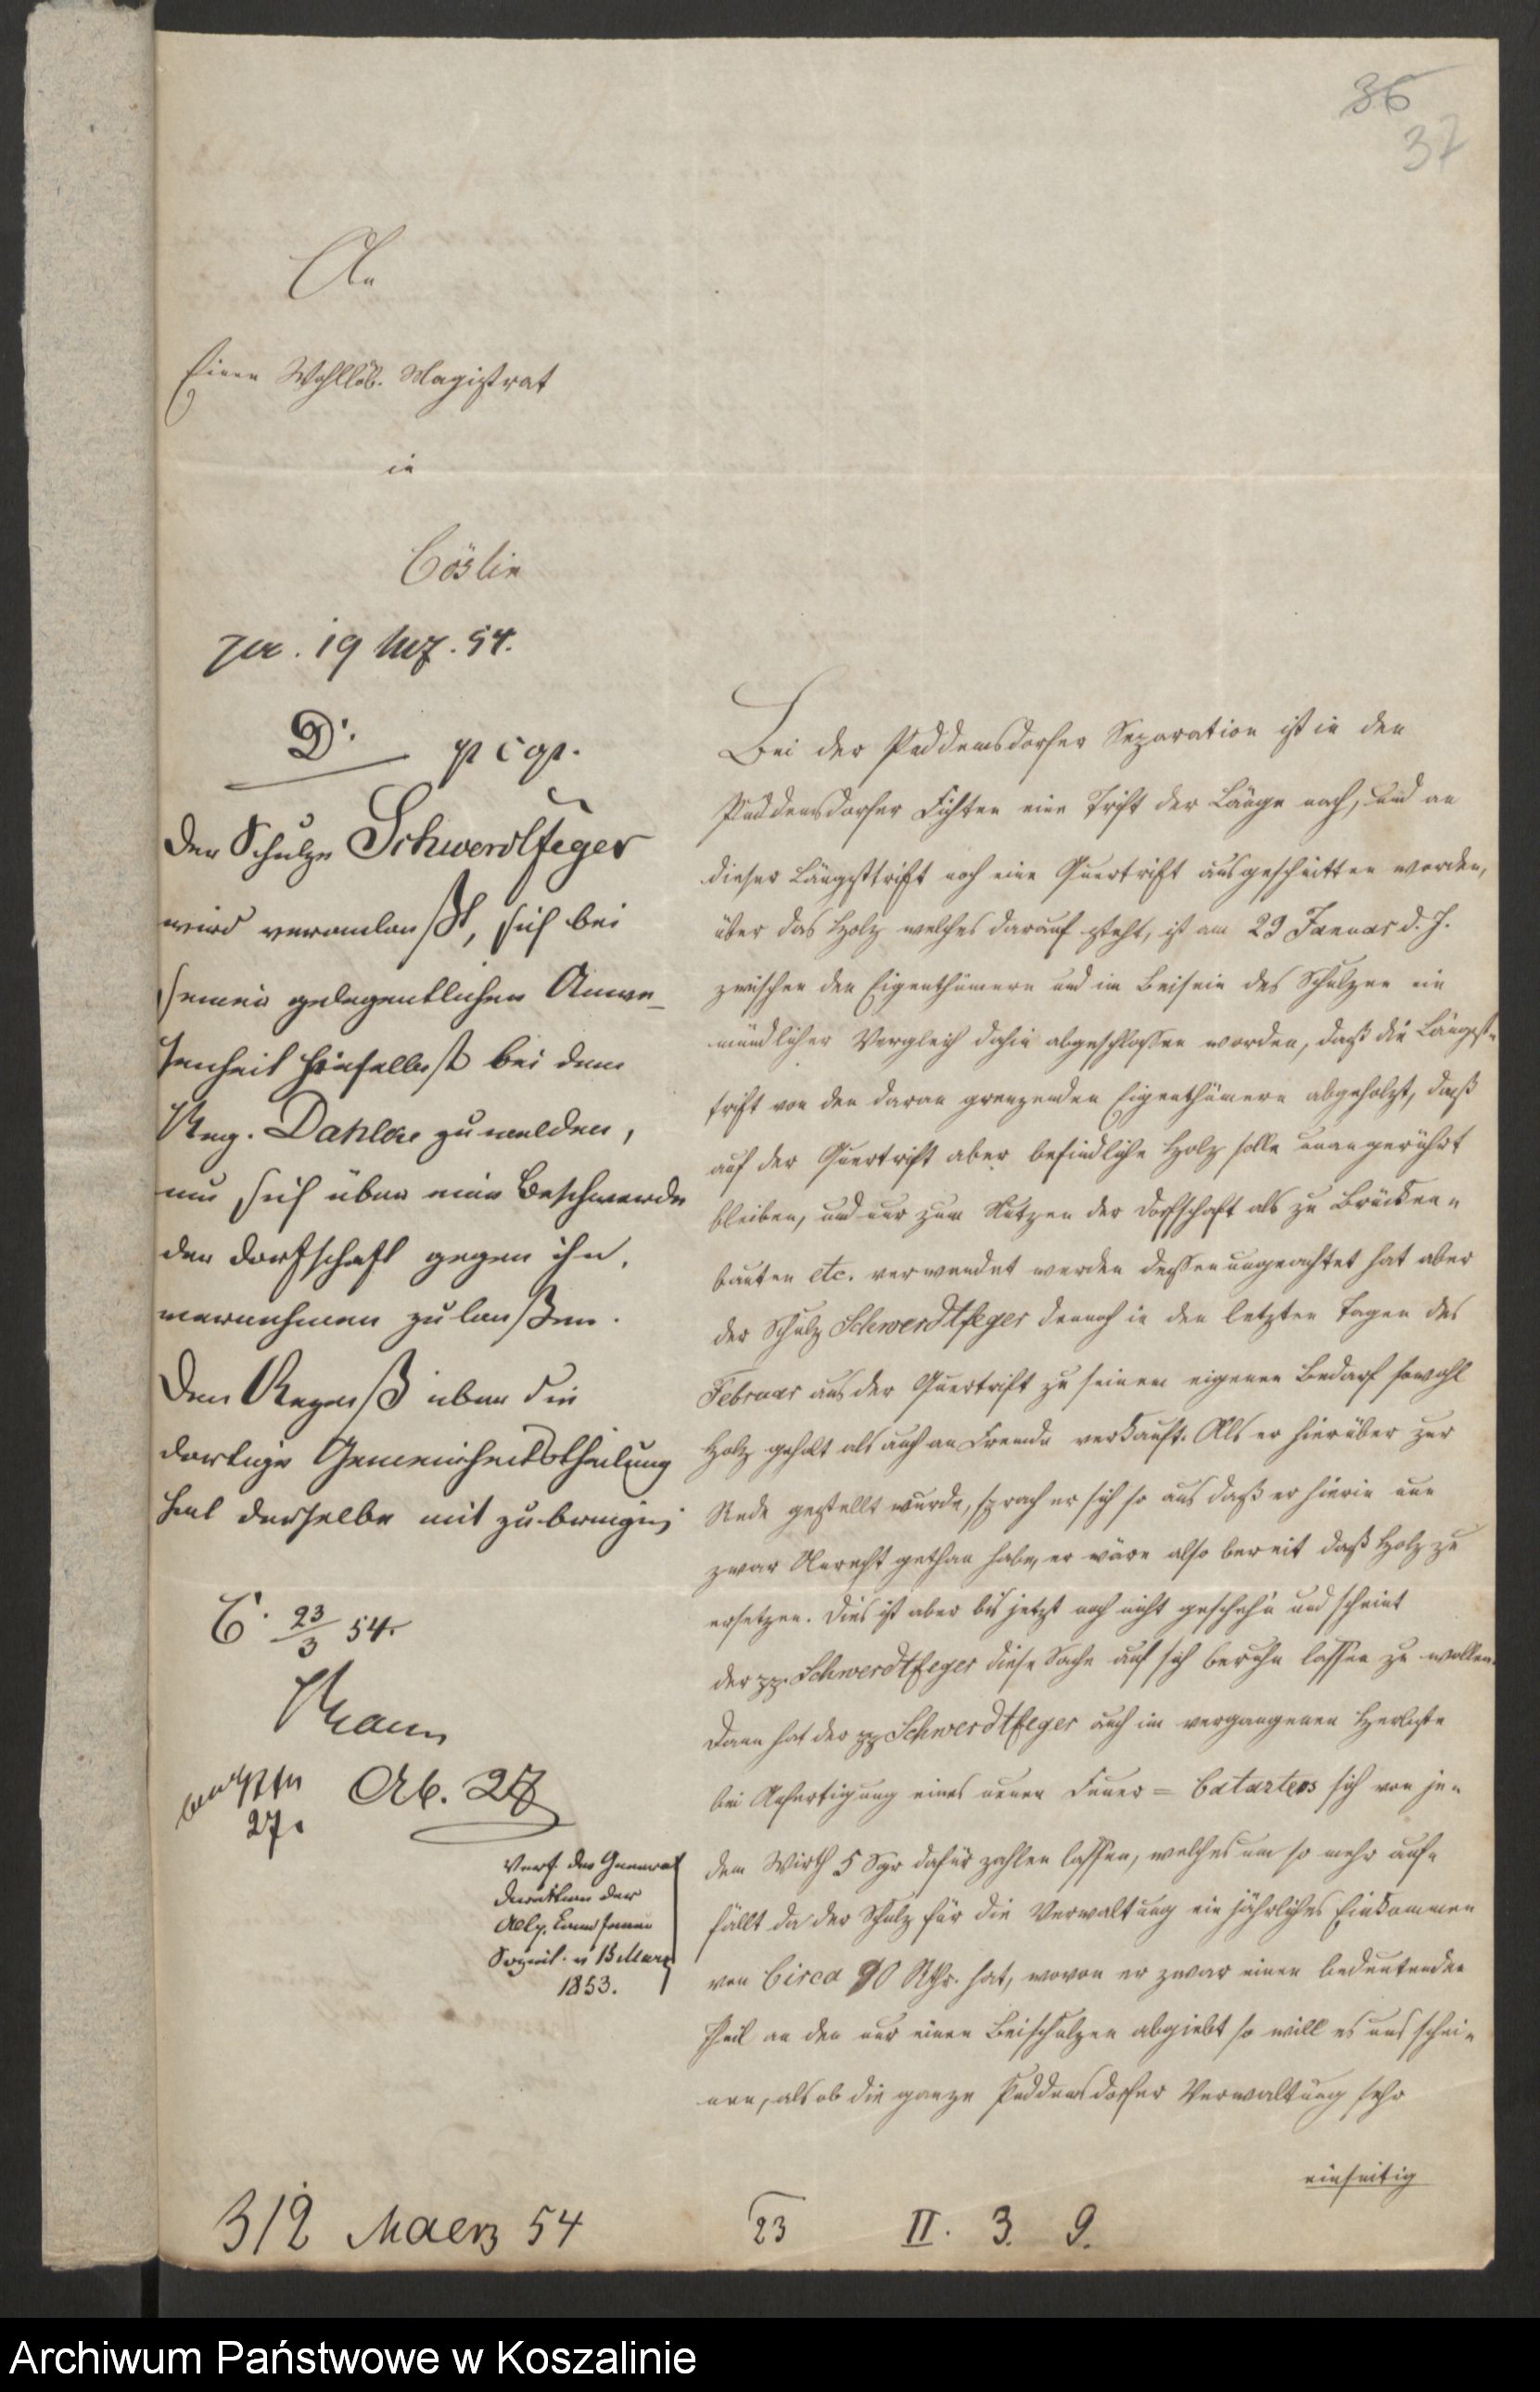 36
37
An
Einen Wohllöb. Magistrat
in
Cöslin
19 Mrz. 54.
D.
Der Schulze Schwerdtfeger
wird veranlaßt, sich bei
seiner gelegentlichen Anwe-
senheit hieselbst bei dem
Reg. Dahlke zu melden,
um sich über eine Beschwerde
der Dorfschaft gegen ihn,
vernehmen zu laßen.
Den Rezeß über die
dortige Gemeinheitstheilung
hat derselbe mit zubringen
C. 23/3 54.
27.
Ab. 27
Verf. der General
Direktion der
Allg. Land
Soziet. v 13 März
1853.
Bei der Puddemsdorfer Separation ist in den
Puddemsdorfer Fichten eine Trift der Länge nach, und an
dieser Längsttrift noch eine Quertrift ausgeschnitten worden,
über das Holz welches darauf steht, ist am 29 Januar d. J.
zwischen den Eigenthümern und im Beisein des Schulzen ein
mündlicher Vergleich dahin abgeschloßen worden, daß die Längst-
trift von den daran grenzenden Eigenthümern abgeholzt, daß
auf der Quertrift aber befindliche Holz solle unangerührt
bleiben, und nur zum Nutzen der Dorfschaft als zu Brücken-
bauten etc. verwendet werden deßenungeachtet hat aber
der Schulz Schwerdtfeger dennoch in den letzten Tagen des
Februar aus der Quertrift zu seinem eigenen Bedarf sowohl
Holz geholt als auch an Fremde verkauft. Als er hierüber zur
Rede gestellt wurde, sprach er sich so aus daß er hierin nun
zwar Unrecht gethan habe, er wäre also bereit daß Holz zu
ersetzen. Dies ist aber bis jetzt noch nicht gescheh'n und scheint
der pp. Schwerdtfeger diese Sache auf sich beruhn lassen zu wollen.
Dann hat der pp Schwerdtfeger auch im vergangenen Herbste
bei Anfertigung eines neuen Feuer-Catasters sich von je-
dem Wirth 5 Sgr dafür zahlen lassen, welches um so mehr auf-
fällt da der Schulz für die Verwaltung ein jährliches Einkommen
von Circa 90 Rthr. hat, wovon er zwar einen bedeutenden
Theil an den nur einen Beischulzen abgiebt so will es uns schei-
nen, als ob die ganze Puddemsdorfer Verwaltung sehr
einseitig
312 Maerz 54
23 II. 3. 9.
Archiwum Państwowe w Koszalinie